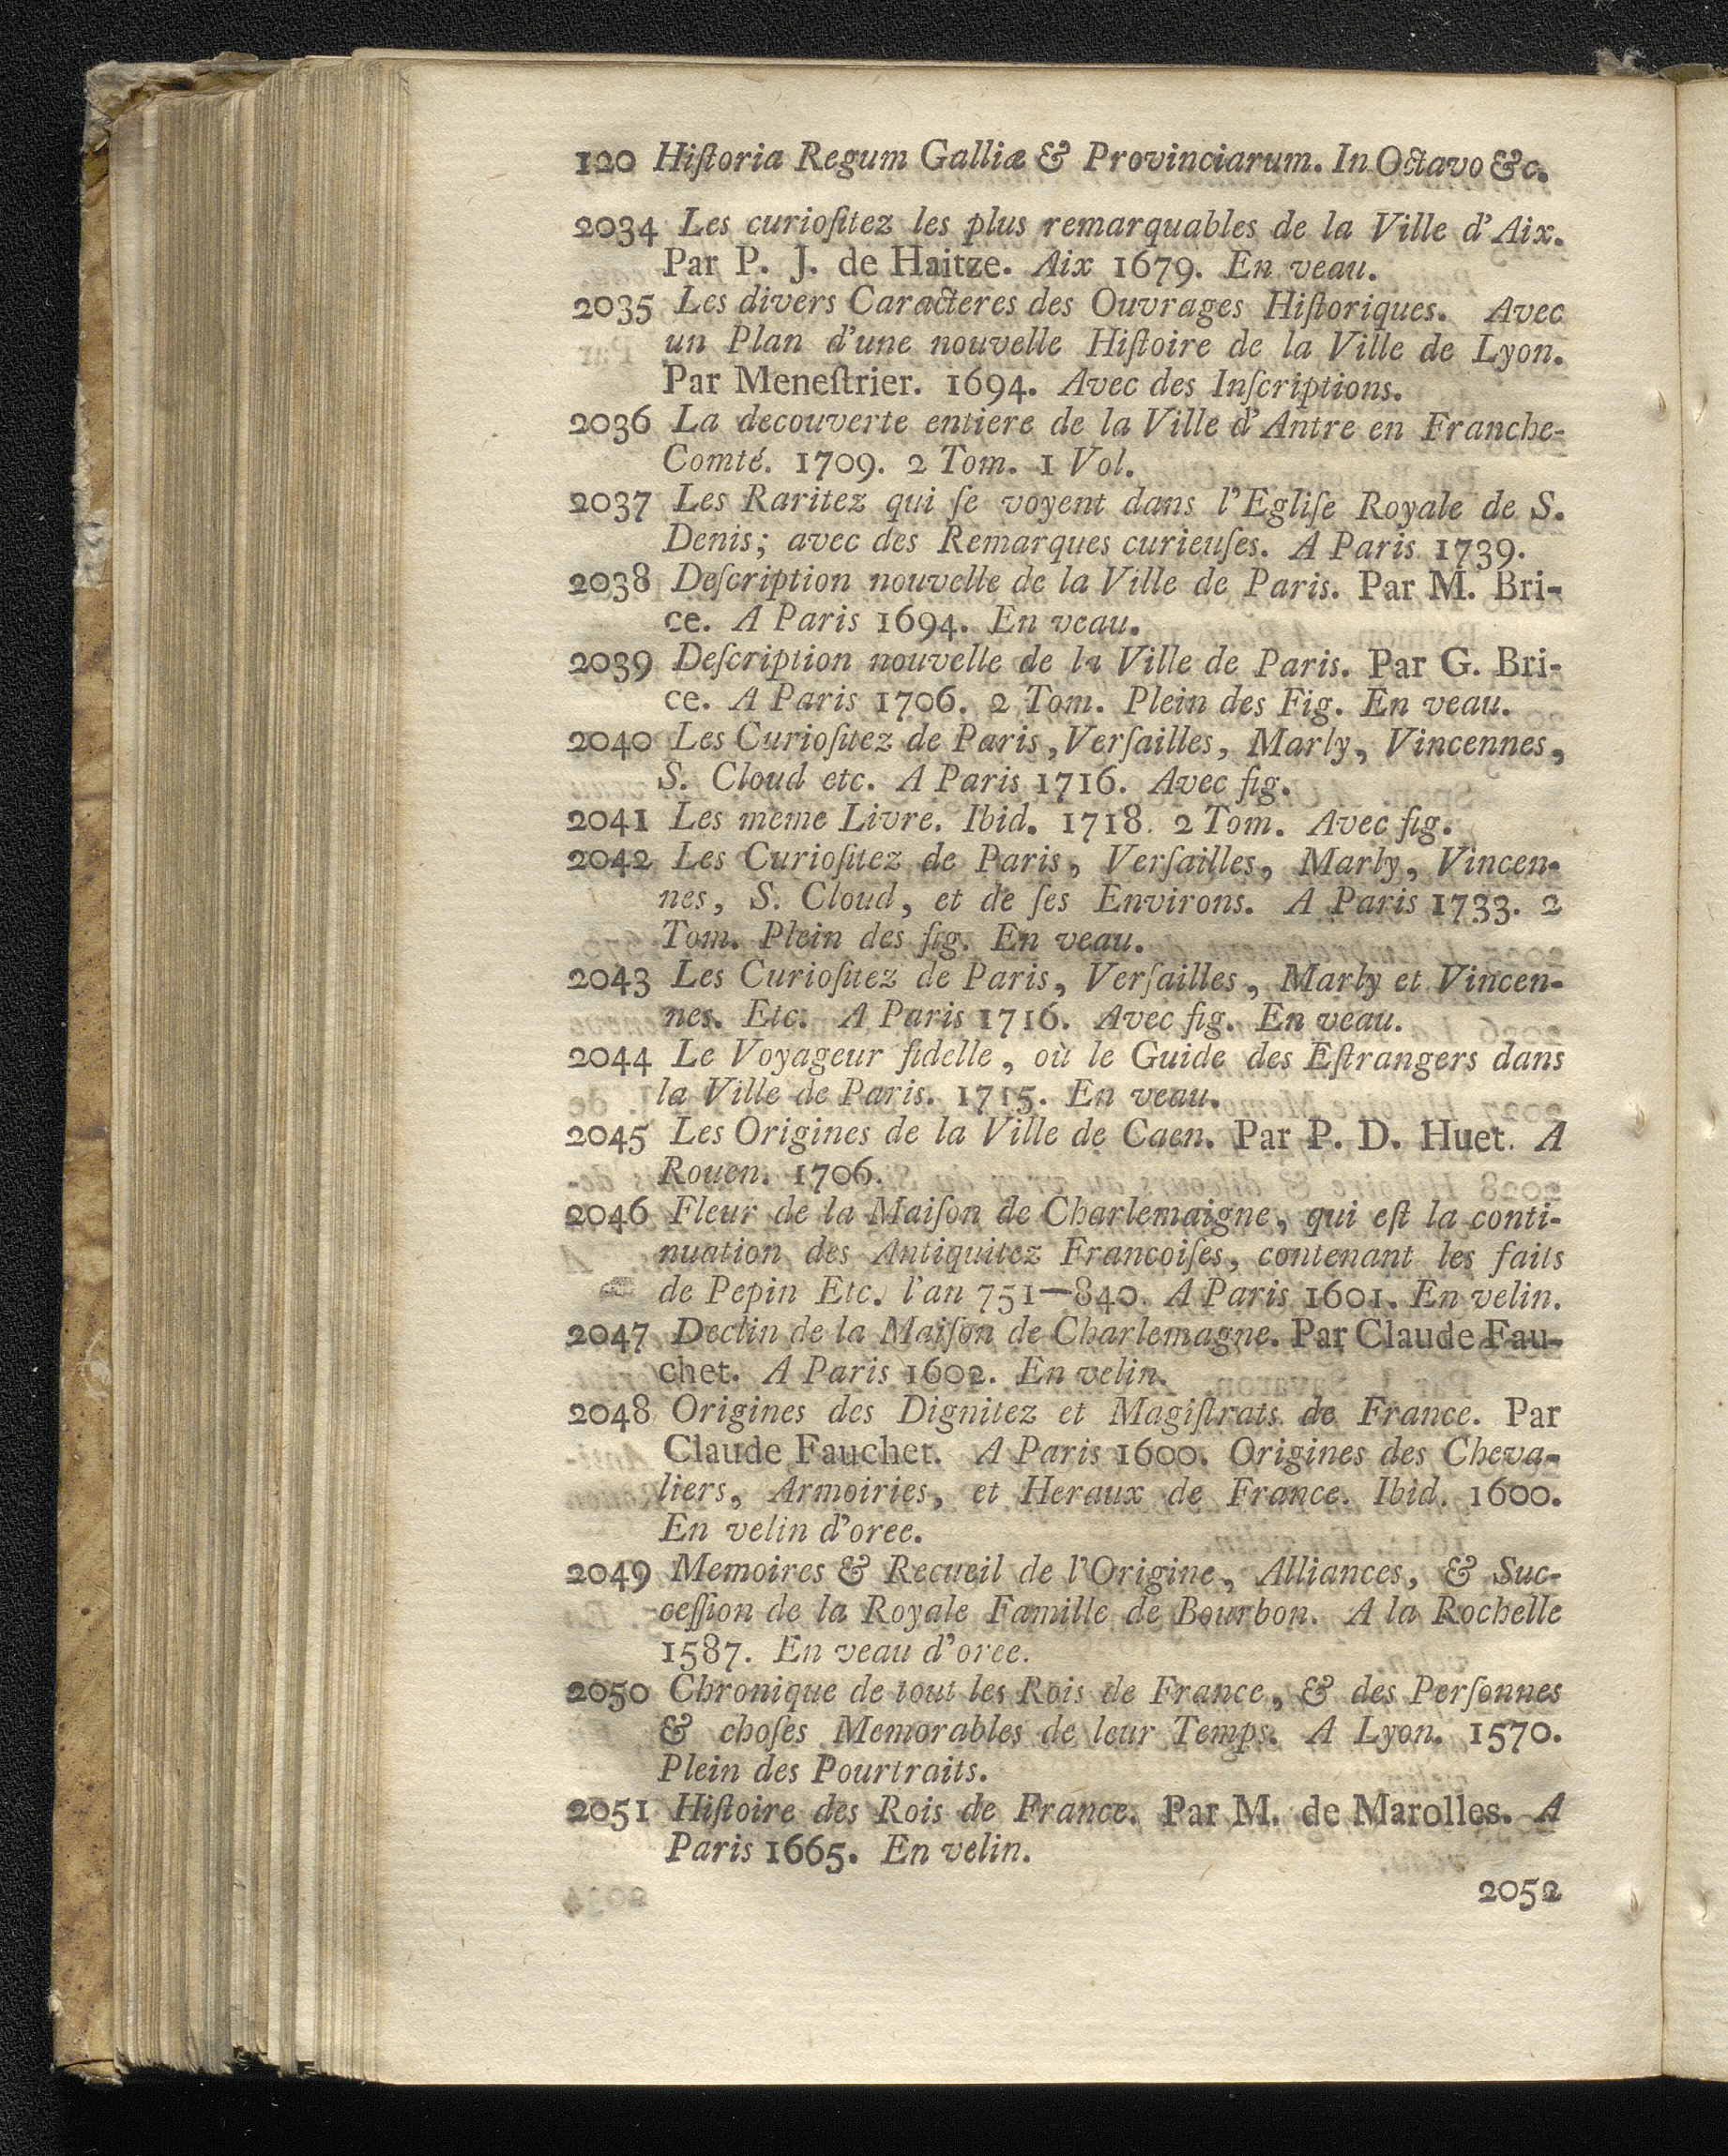 120 Hiſtoria Regum Galliæ & Provinciarum. In Octavo &c.
2034 Les curioſitez les plus remarquables de la Ville d'Aix.
Par P. J. de Haitze. Aix 1679. En veau.
2035 Les divers Caracteres des Ouvrages Hiſtoriques. Avec
un Plan d'une nouvelle Hiſtoire de la Ville de Lyon.
Par Meneſtrier. 1694. Avec des Inſcriptions.
2036 La decouverte entiere de la Ville d'Antre en Franche-
Comté. 1709. 2 Tom. 1 Vol.
2037 Les Raritez qui ſe voyent dans l'Egliſe Royale de S.
Denis; avec des Remarques curieuſes. A Paris 1739.
2038 Deſcription nouvelle de la Ville de Paris. Par M. Bri-
ce. A Paris 1694. En veau.
2039 Deſcription nouvelle de la Ville de Paris. Par G. Bri-
ce. A Paris 1706. 2 Tom. Plein des Fig. En veau.
2040 Les Curioſitez de Paris, Verſailles, Marly, Vincennes,
S. Cloud etc. A Paris 1716. Avec fig.
2041 Les meme Livre. Ibid. 1718. 2 Tom. Avec fig.
2042 Les Curioſitez de Paris, Verſailles, Marly, Vincen-
nes, S. Cloud, et de ſes Environs. A Paris 1733. 2
Tom. Plein des fig. En veau.
2043 Les Curioſitez de Paris, Verſailles, Marly et Vincen-
nes. Etc. A Paris 1716. Avec fig. En veau.
2044 Le Voyageur fidelle, où le Guide des Eſtrangers dans
la Ville de Paris. 1715. En veau.
2045 Les Origines de la Ville de Caen. Par P. D. Huet. A
Rouen. 1706.
2046 Fleur de la Maiſon de Charlemaigne, qui eſt la conti-
nuation des Antiquitez Francoiſes, contenant les faits
de Pepin Etc. l'an 751—840. A Paris 1601. En velin.
2047 Declin de la Maiſon de Charlemagne. Par Claude Fau-
chet. A Paris 1602. En velin.
2048 Origines des Dignitez et Magiſtrats de France. Par
Claude Fauchet. A Paris 1600. Origines des Cheva-
liers, Armoiries, et Heraux de France. Ibid. 1600.
En velin d'oree.
2049 Memoires & Recueil de l'Origine, Alliances, & Suc-
ceſſion de la Royale Famille de Bourbon. A la Rochelle
1587. En veau d'oree.
2050 Chronique de tout les Rois de France, & des Perſonnes
& choſes Memorables de leur Temps. A Lyon. 1570.
Plein des Pourtraits.
2051 Hiſtoire des Rois de France. Par M. de Marolles. A
Paris 1665. En velin.
2052